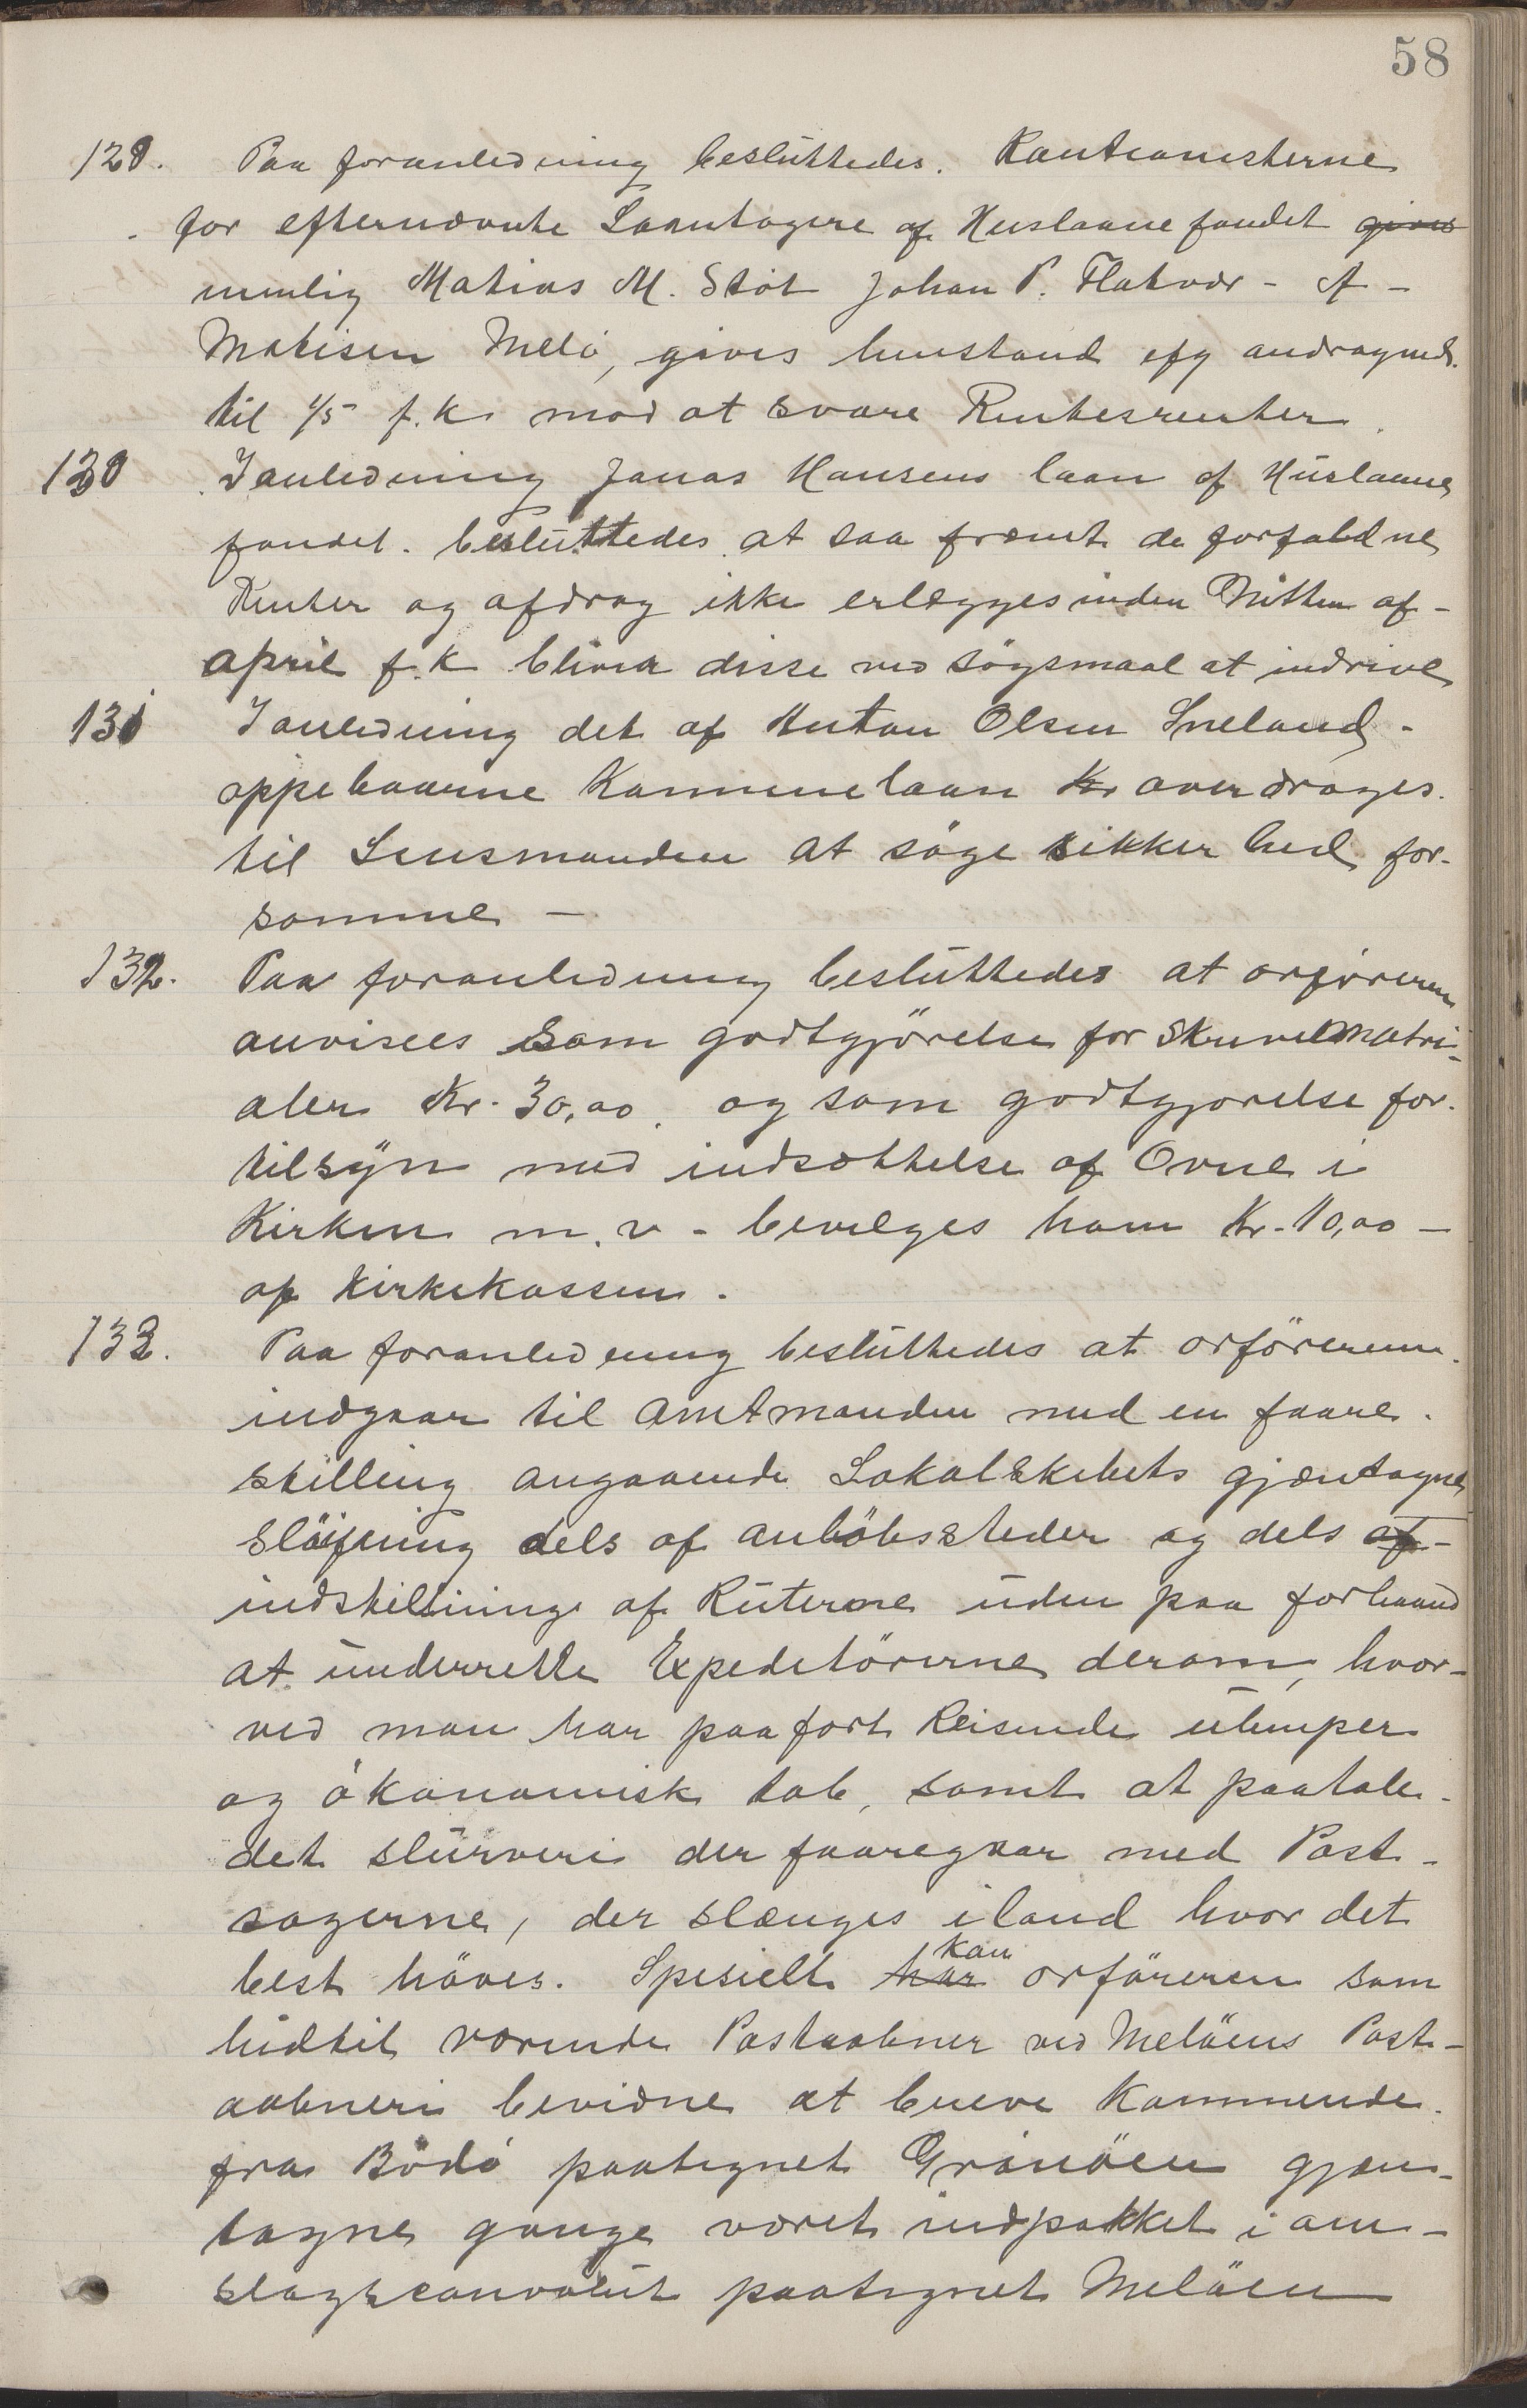 58
129. Paa foranledning besluttedes. Kautionisterne
for efternævnte Laantagere af Huslaanefondet gives
nemlig Matias M. Støt Johan P. Flatvær - A -
Matisen Melø, gives henstand efg andragende
til 1/5 f.k. mod at svare Rentesrenter.
130 I anledning Jonas Hansens laan af Huslaane
fondet. besluttedes at saa fremt de forfaldne
Renter og afdrag ikke erlægges inden Mitten af -
april f.k bliver disse ved søgsmaal at indrive
131 I anledning det af Anton Olsen Sneland -
oppebaarne Kommunelaan Kr overdrages.
til Lensmanden at søge sikkerhed for-
samme —
132. Paa foranledning besluttedes at orføreren
anvisees som godtgjörelse for Skrivematri-
aler Kr. 30,00. og som godtgjorelse for.
tilsyn med indsættelse af Ovne i
Kirken m. v - bevilges ham Kr. 10,00 —
af Kirkekassen.
133. Paa foranledning besluttedes at orföreren.
indgaar til Amtmanden med en faare.
stilling angaaende Lokalskibets gjentagne
Slöifning dels af anlöbssteder og dels af -
indstilling af Ruterne uden paa forhaand
at underrette Expeditörerne derom, hvor-
ved man har paafört Reisende ulemper
og økonomisk tab, samt at paatale.
det slurveri der faaregaar med Post-
sagerne, der slænges iland hvor det
best höves. Spesielt har kan orföreren som
hidtil værende Postaabner ved Melöens Post-
aabneri bevidne at breve Kommende.
fra Bödø paategnet Grönöen gjen-
tagne gange været indpakket i om-
slagsconvolut paategnet Melöen